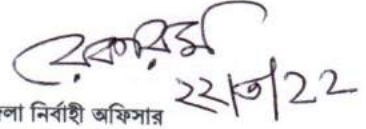 ২২/৩/২২
লা নির্বাহী অফিসার